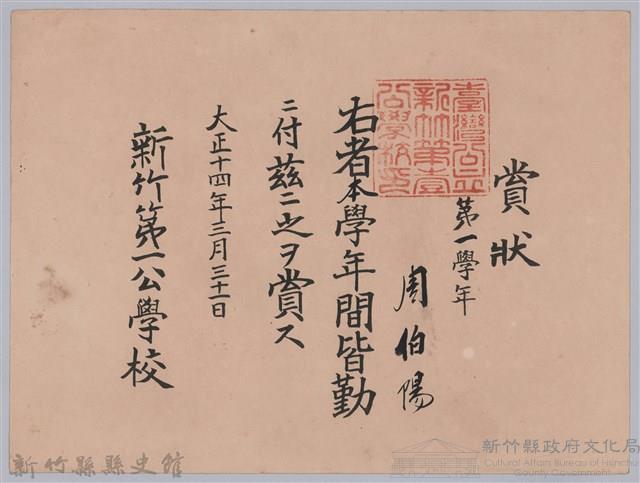 賞狀
第一學年
周伯陽
右者本學年間皆勤
ニ付茲ニ之ヲ賞ス
大正十四年三月三十一日
新竹第一公學校
臺灣公立
新竹第壹
公學校印
新竹縣縣史館
新竹縣政府文化局
Cultural Affairs Bureau of Hsinchu
County Government